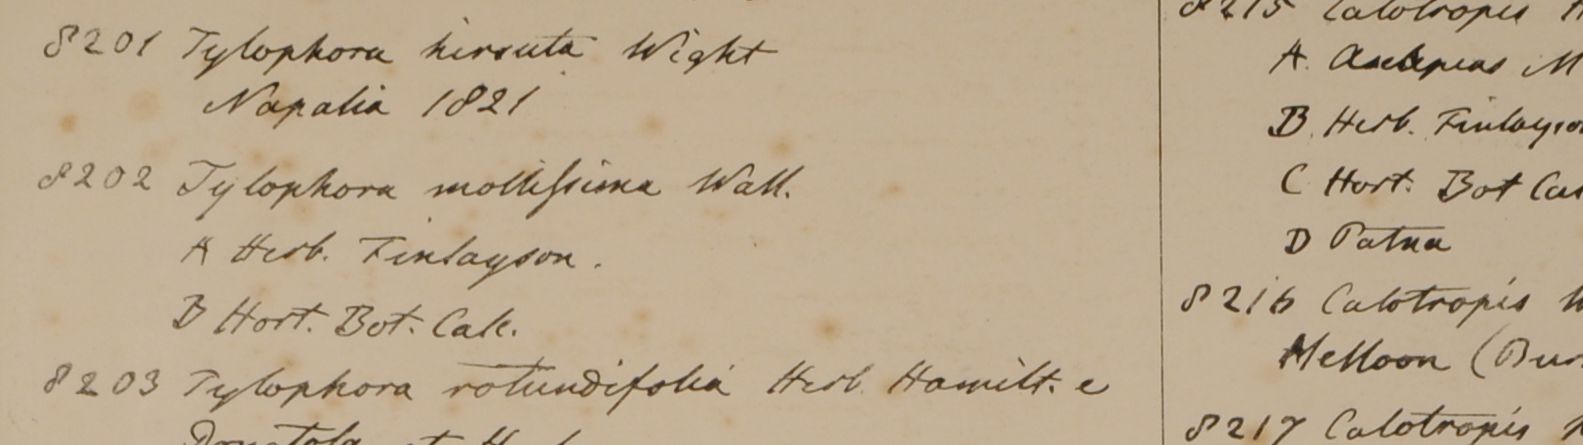 8201 Tylophora hirsuta Wight
Napalia 1821
8202 Tylophora mollissima Wall.
A Herb. Finlayson.
B Hort. Bot. Calc.
8203 Tylophora rotundifolia Herb. Hamilt. e
8215 Calotropis
A. Asclepias M
B. Herb. Finlayson
C Hort. Bot Cal
D Patna
8216 Calotropis
Melloon (Bur
8217 Calotropis